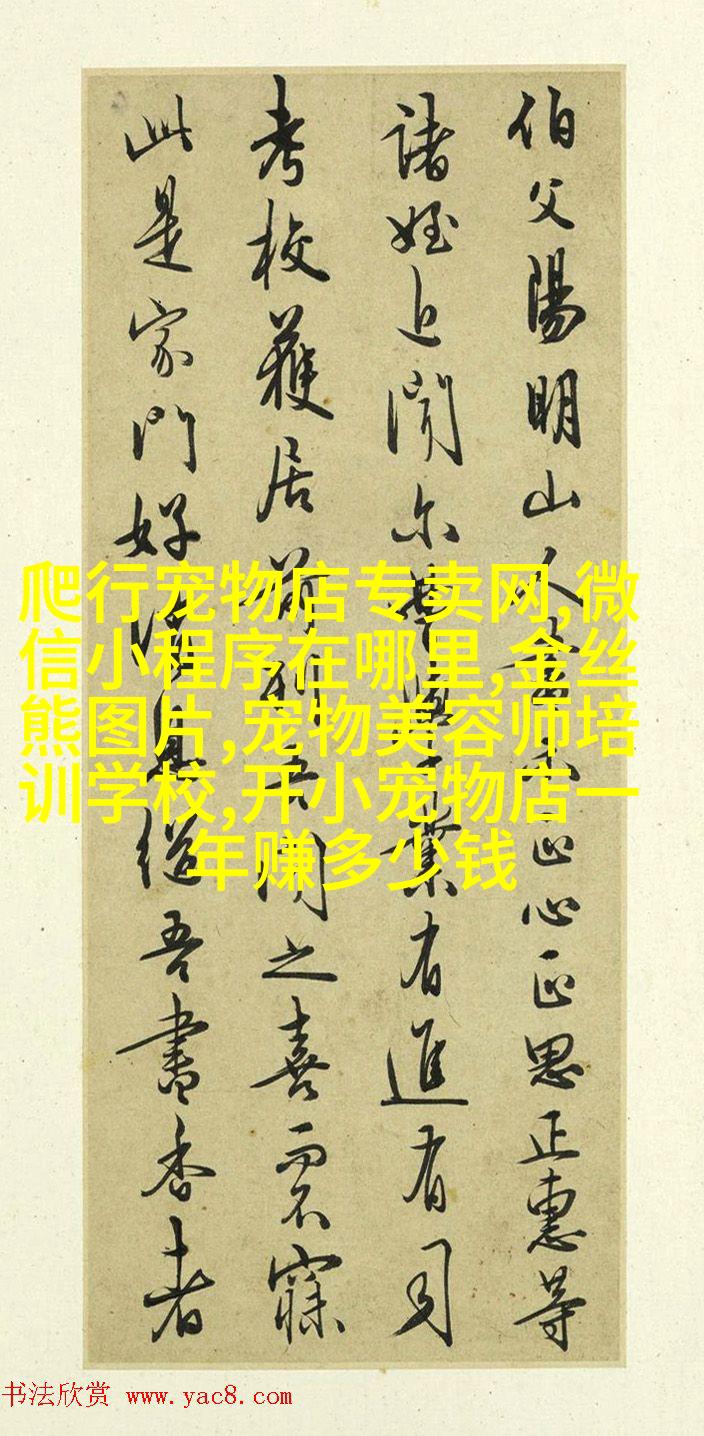 伯父陽明山人書示正心正思正惠等
諸姪近聞尔曹學業有進有司
考校獲居前列吾聞之喜而不寐
此是家門好消息繼吾書香者
爬行宠物店专卖网,微
信小程序在哪里,金丝
熊图片,宠物美容师培
训学校,开小宠物店一
年赚多少钱
书法欣赏 www.yac8.com